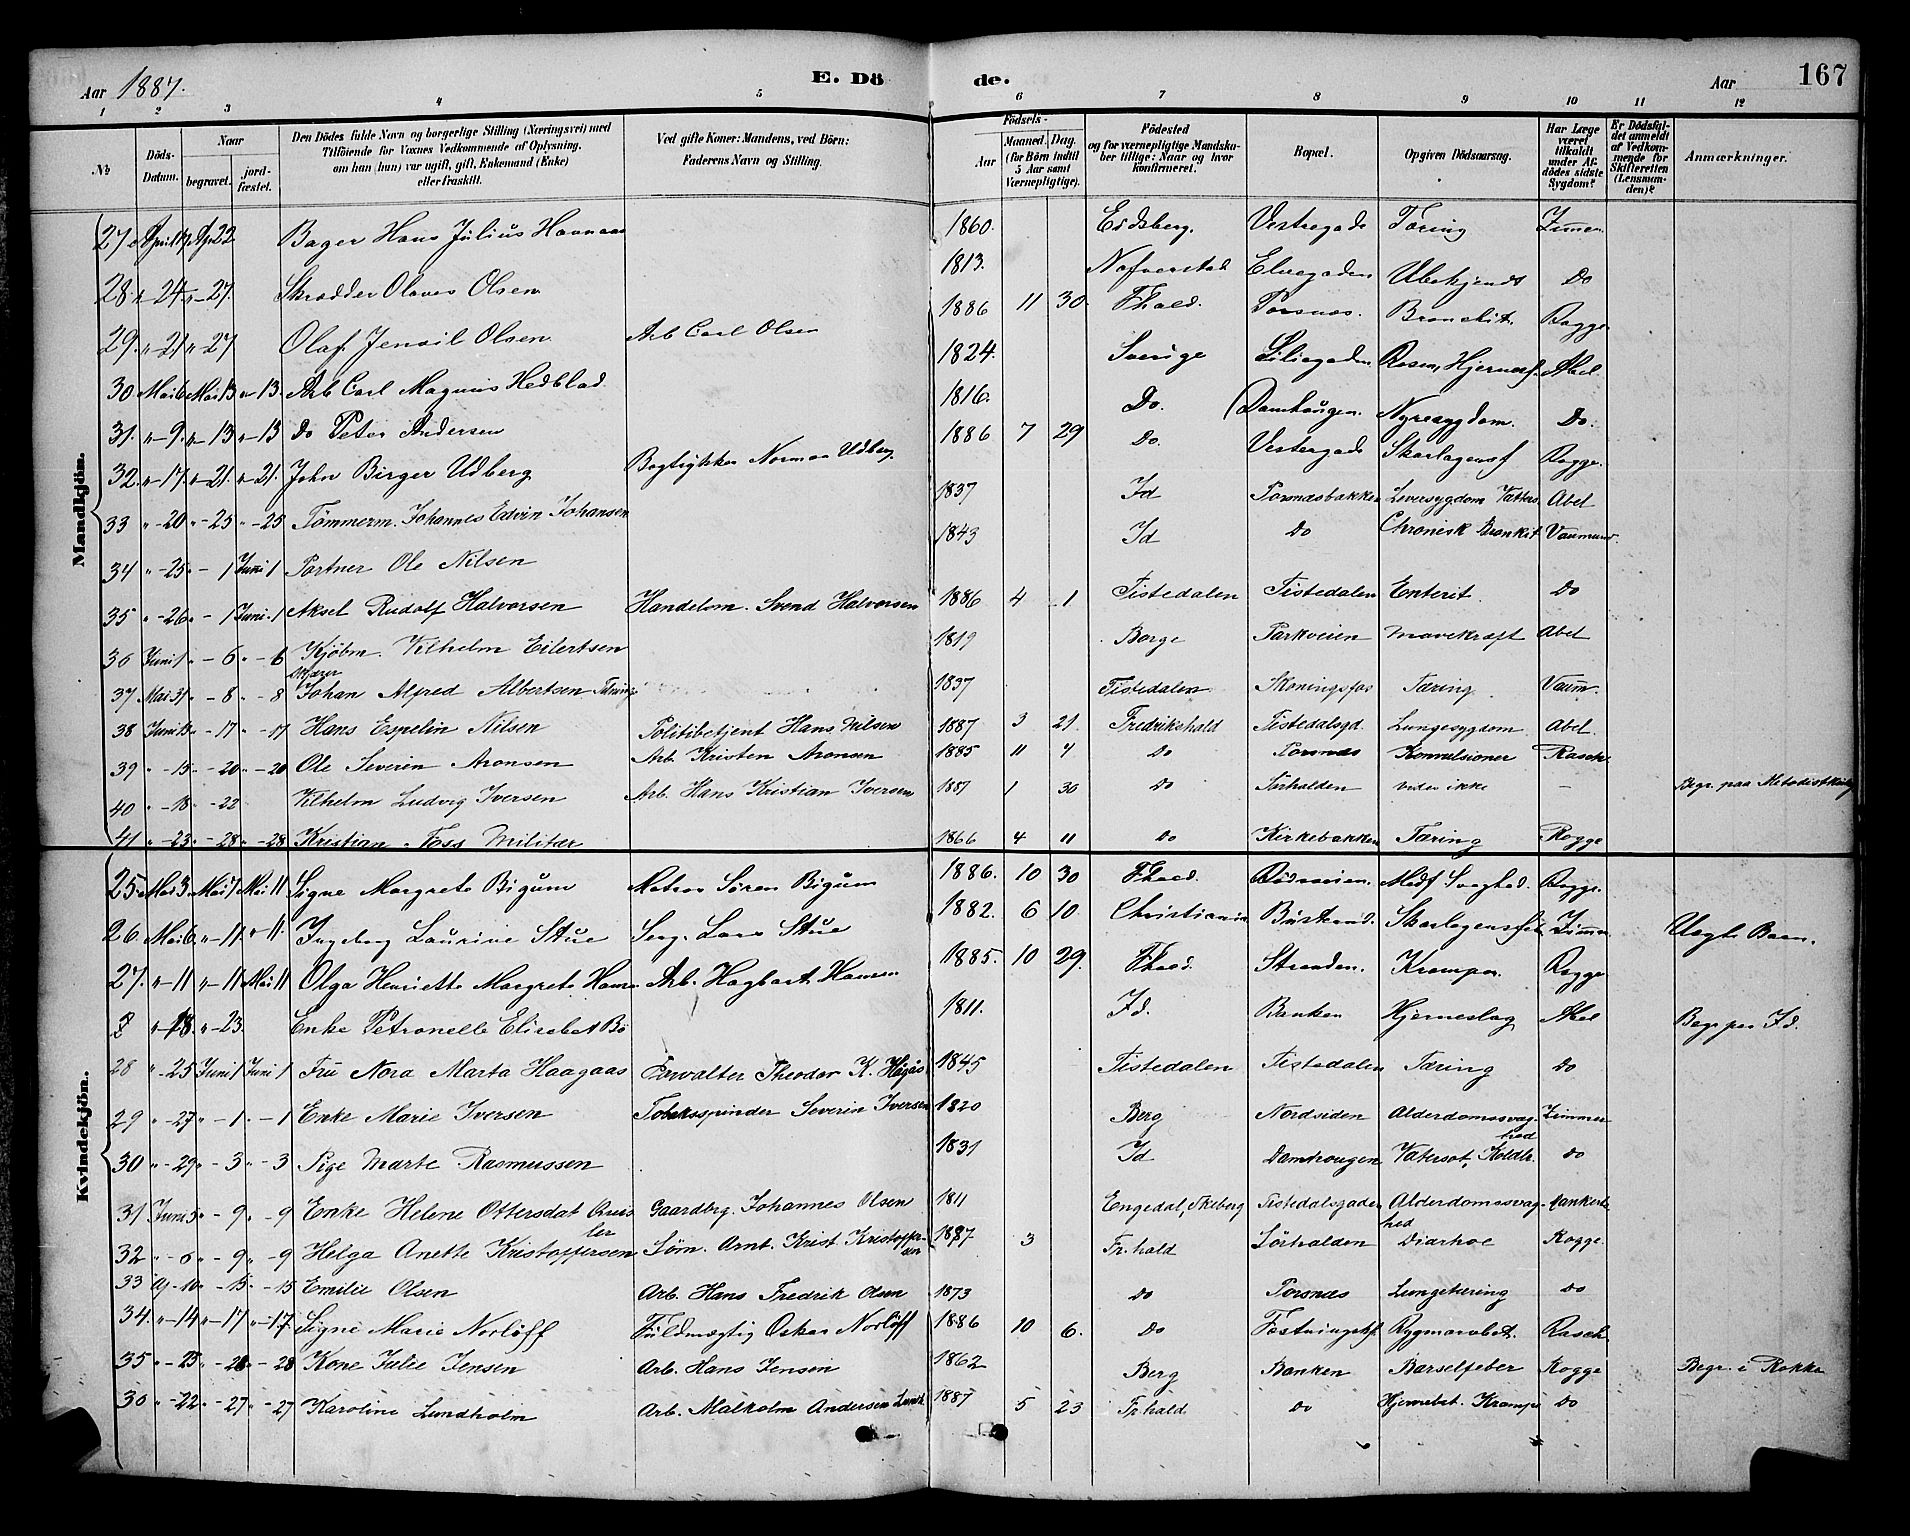 Aar 1887. E. Dö de. Aar 167
1 2 3 4 5 6 7 8 9 10 11 12
№ Döds-Datum. Naar begravet. jord-fæstet. Den Dödes fulde Navn og borgerlige Stilling (Næringsvei) med Tilföiende for Voxnes Vedkommende af Oplysning, om han (hun) var ugift, gift, Enkemand (Enke) eller fraskilt. Ved gifte Koner: Mandens, ved Börn: Faderens Navn og Stilling. Födsels- Aar Maaned. Dag. (for Börn indtil 5 Aar samt Værnepligtige). Födested og for værnepligtige Mandskaber tillige: Naar og hvor konfirmeret. Bopæl. Opgiven Dödsaarsag. Har Læge været tilkaldt under Afdödes sidste Sygdom? Er Dödsfaldet anmeldt af Vedkommende for Skifteretten (Lensmanden)? Anmærkninger.
Mandkjön.
27 April 17 Apr 22 Bager Hans Julius Havnaas 1860. Eidsberg. Vestregade Tæring Zimmer
28 " 24 " 27. Skrædder Olaves Olsen 1813. Nafverstad Elvegaden Ubekjendt Do
29. " 21 " 27 Olaf Jensil Olsen Arb Carl Olsen 1886 11 30 Fhald. Torsnæs. Bronchit. Rogge
30 Mai 6 Mai 13 " 13. Arb Carl Magnus Hedblad. 1824. Sverige Liliegaden Rosen, Hjernesf. Abel.
31. " 9. " 13 " 13 Do Peter Andersen 1816. Do. Damhaugen. Nyresygdom. Do.
32. " 17. " 21. " 21. John Birger Udberg Bogtrykker Norman Udberg. 1886 7 29 Do. Vestergade Skarlagensf Rogge.
33 " 20 " 25 " 25 Tömmerm. Johannes Edvin Johansen 1837 Id Torsnæsbakken Leversygdom Vatters. Abel
34 " 25 " 1 Juni 1 Portner Ole Nilsen 1843 Id Do Chronisk Bronkit Vaumund.
35 " 26 " 1 Juni 1 Aksel Rudolf Halvorsen Handelsm. Svend Halvorsen 1886 4 1 Tistedalen Tistedalen Enterit. Do
36 Juni 1 " 6 " 6 Kjöbm. Vilhelm Eilertsen 1819 Borge Parkveien Mavekræft Abel
37 Mai 31 " 8 " 8 Johan Alfred Albertsen 1837 Tistedalen Skoningsfos Tæring Vaum.
38 Juni 13 " 17 " 17 Hans Espelin Nilsen Politibetjent Hans Nilsen 1887 3 21 Fredrikshald Tistedalsgd. Lungesygdom Abel.
39 " 15 " 20 " 20 Ole Severin Aronsen Arb. Kristen Aronsen 1885 11 4 Do Torsnæs Konvulsioner Rasch
40 " 18 " 22 Vilhelm Ludvig Iversen Arb. Hans Kristian Iversen 1887 1 30 Do Sörhalden vides ikke — Begr. paa Metodistkirkeg
41 " 23 " 28 " 28 Kristian Foss Militær 1866 4 11 Do Kirkebakken Tæring Rogge
Kvindekjön.
25 Mai 3 Mai 7 Mai 11 Signe Margrete Bigum Matros Sören Bigum 1886. 10 30 Fhald. Rödsveien. Medf Svaghed. Rogge.
26. Mai 6. " 11. " 11. Ingeborg Laurine Stue Serg. Lars Stue 1882. 6 10. Christiania Buskrud. Skarlagensfeb. Zimm Uægte Barn.
27. " 11 " 11 Mai 11 Olga Henriette Margrete Hans. Arb. Hagbart Hansen 1885. 10 29. Fhald. Stranden. Krampe. Rogge
2 " 18. " 23. Enke Petronelle Elisabet Bö 1811. Id. Banken Hjerneslag Abel Begr paa Id.
28 " 25 Juni 1 Juni 1 Fru Nora Marta Haagaas Forvalter Theodor K. Hagås 1845 Tistedalen Tistedalen Tæring Do
29 " 27 " 1 " 1 Enke Marie Iversen Tobaksspinder Severin Iversen 1820 Berg Nordsiden Alderdomssvaghed Zimmer
30 " 29 " 3 " 3 Pige Marte Rasmussen 1831 Id Damhaugen Vatersot, Koldbr. Do
31 Juni 3 " 9 " 9 Enke Helene Ottersdat Gaardbrg. Johannes Olsen 1811 Engedal, Skeberg Tistedalsgaden Alderdomssvaghed
32 " 6 " 9 " 9 Helga Anette Kristoffersen Söm. Arnt. Krist. Kristoffersen 1887 3 Fr.hald Sörhalden Diarhoe Rogge
33 " 10 " 15 " 15 Emilie Olsen Arb. Hans Fredrik Olsen 1873 Do Torsnæs Lungetæring Do
34. " 14 " 17 " 17 Signe Marie Norlöff Fuldmægtig Oskar Norlöff 1886 10 6. Do Fæstningsgd. Rygmarvbet. Rasch
35 " 25 " 28 " 28 Kone Julie Jensen Arb. Hans Jensen 1862 Berg Banken Barselfeber Rogge Begr. i Rokke
36 " 22 " 27 " 27 Karoline Lundholm Arb. Malkolm Andersen Lundh. 1887 5 23 Fr.hald Do Hjernebet. Krampe Do